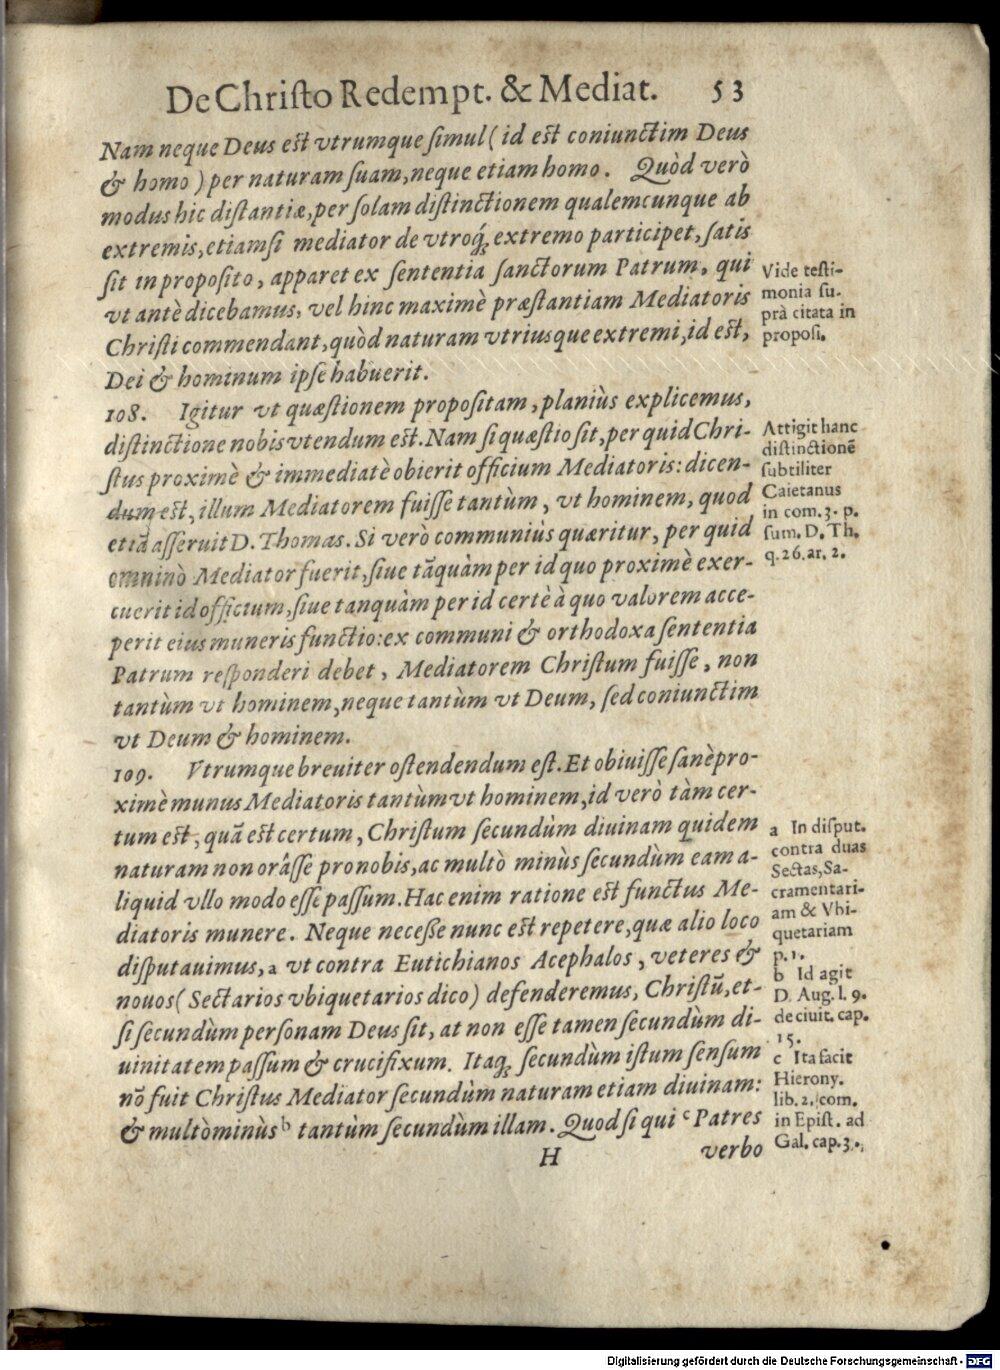 De Christo Redempt. & Mediat. 53
Nam neque Deus est vtrumque simul ( id est coniunctim Deus
& homo ) per naturam suam, neque etiam homo. Quòd verò
modus hic distantiæ, per solam distinctionem qualemcunque ab
extremis, etiamsi mediator de vtroq́; extremo participet, satis
sit in proposito, apparet ex sententia sanctorum Patrum, qui
vt antè dicebamus, vel hinc maximè præstantiam Mediatoris
Christi commendant, quòd naturam vtriusque extremi, id est,
Dei & hominum ipse habuerit.
Vide testi-
monia su-
prà citata in
proposi.
108. Igitur vt quæstionem propositam, planiùs explicemus,
distinctione nobis vtendum est. Nam si quæstio sit, per quid Chri-
stus proximè & immediatè obierit officium Mediatoris: dicen-
dum est, illum Mediatorem fuisse tantùm, vt hominem, quod
etiā asseruit D. Thomas. Si verò communiùs quæritur, per quid
omninò Mediator fuerit, siue tāquàm per id quo proximè exer-
cuerit id officium, siue tanquàm per id certè à quo valorem acce-
perit eius muneris functio: ex communi & orthodoxa sententia
Patrum responderi debet, Mediatorem Christum fuisse, non
tantùm vt hominem, neque tantùm vt Deum, sed coniunctim
vt Deum & hominem.
Attigit hanc
distinctionē
subtiliter
Caietanus
in com. 3. p.
sum. D. Th.
q. 26. ar. 2.
109. Vtrumque breuiter ostendendum est. Et obiuisse sanè pro-
ximè munus Mediatoris tantùm vt hominem, id verò tàm cer-
tum est, quā est certum, Christum secundùm diuinam quidem
naturam non orâsse pro nobis, ac multò minùs secundùm eam a-
liquid vllo modo esse passum. Hac enim ratione est functus Me-
diatoris munere. Neque necesse nunc est repetere, quæ alio loco
disputauimus, a vt contra Eutichianos Acephalos, veteres &
nouos ( Sectarios vbiquetarios dico ) defenderemus, Christū, et-
si secundùm personam Deus sit, at non esse tamen secundùm di-
uinitatem passum & crucifixum. Itaq; secundùm istum sensum
nō fuit Christus Mediator secundùm naturam etiam diuinam:
& multò minùs b tantùm secundùm illam. Quod si qui c Patres
a In disput.
contra duas
Sectas, Sa-
cramentari-
am & Vbi-
quetariam
p. 1.
b Id agit
D. Aug. l. 9.
de ciuit. cap.
15.
c Ita facit
Hierony.
lib. 2. com.
in Epist. ad
Gal. cap. 3.
H verbo
Digitalisierung gefördert durch die Deutsche Forschungsgemeinschaft - DFG